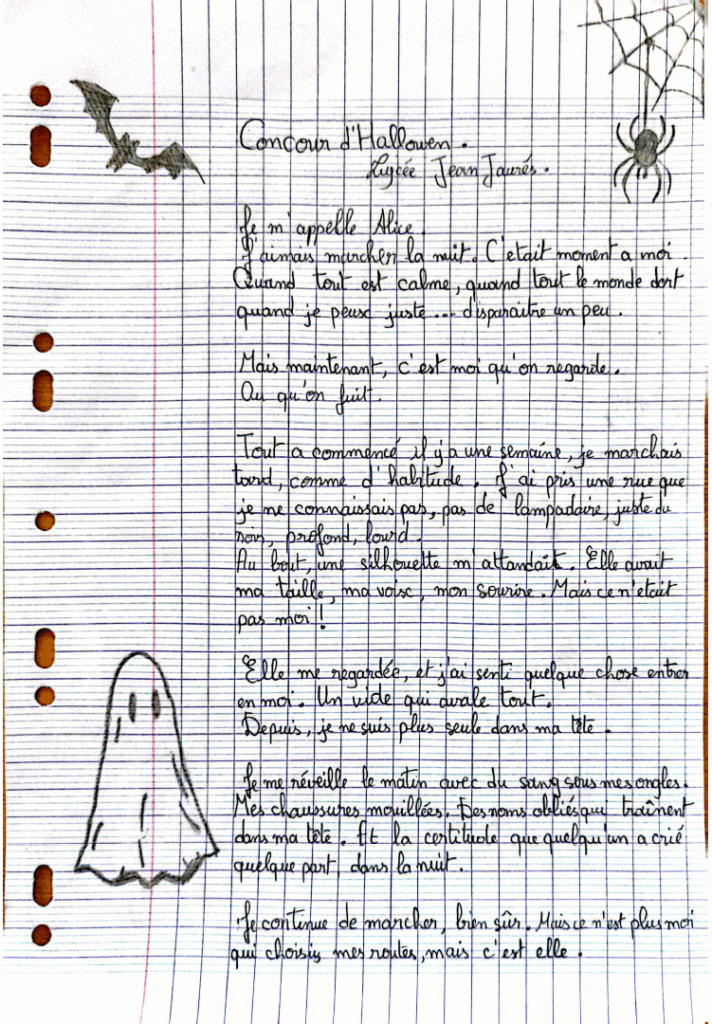 Concour d'Hallowen.
Lycée Jean Jaurés.
Je m'appelle Alice.
J'aimais marcher la nuit. C'etait moment a moi.
Quand tout est calme, quand tout le monde dort
quand je peux juste... disparaitre un peu.
Mais maintenant, c'est moi qu'on regarde.
Ou qu'on fuit.
Tout a commencé il y'a une semaine, je marchais
tard, comme d'habitude. J'ai pris une rue que
je ne connaissais pas, pas de lampadaire, juste du
noir, profond, lourd.
Au bout, une silhouette m'attandait. Elle avait
ma taille, ma voix, mon sourire. Mais ce n'etait
pas moi !
Elle me regardée, et j'ai senti quelque chose entrer
en moi. Un vide qui avale tout.
Depuis, je ne suis plus seule dans ma tête.
Je me réveille le matin avec du sang sous mes ongles.
Mes chaussures mouillées. Des noms obliés qui traînent
dans ma tête. Et la certitude que quelqu'un a crié
quelque part, dans la nuit.
Je continue de marcher, bien sûr. Mais ce n'est plus moi
qui choisis mes routes, mais c'est elle.